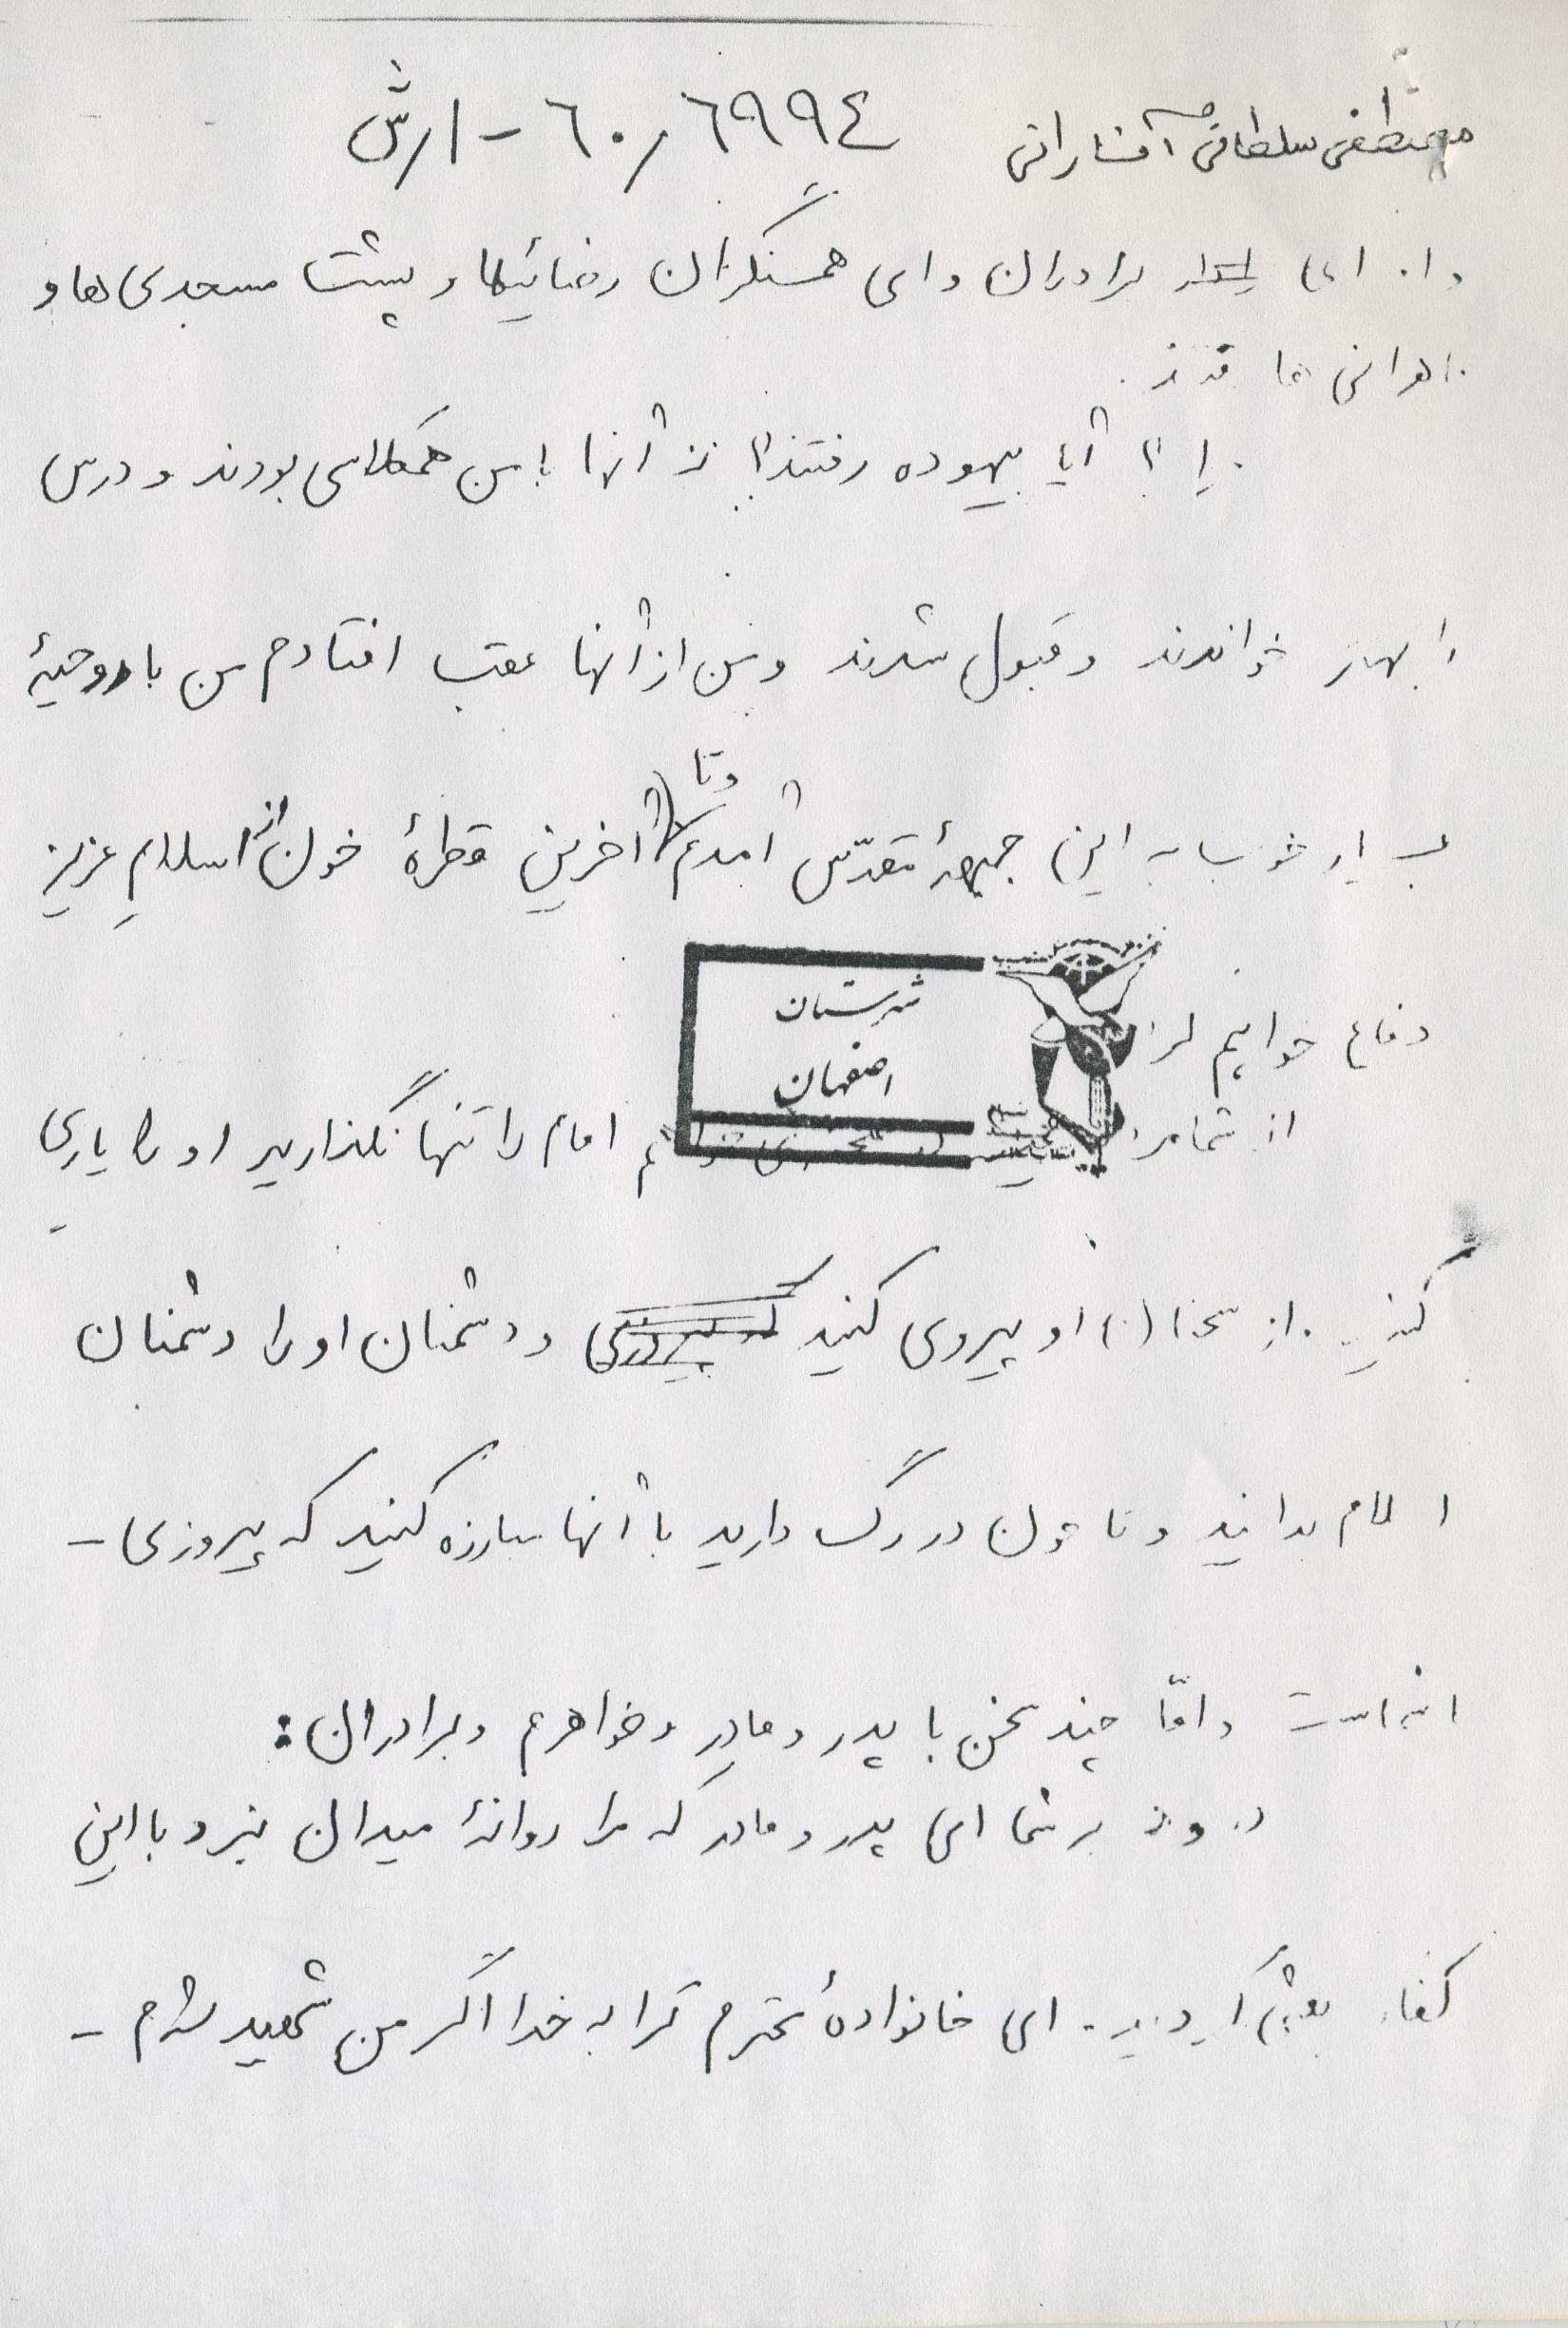 مصطفی سلطانی آفارانی ٦٠/٦٩٩٤ - ا/ش
ای برادران و ای همسنگران رضائیها و پشت مسجدی ها و
آیا بیهوده رفتند؟ نه آنها با من همکلاسی بودند و درس
را بهتر خواندند و قبول شدند و من از آنها عقب افتادم من با روحیهٔ
بسیار خوب به این جبههٔ مقدّس آمدم و تا آخرین قطرهٔ خون از اسلامِ عزیز
دفاع خواهم کرد
شهرستان
اصفهان
از شما امام را تنها نگذارید او را یاری
کنید. از سخنان او پیروی کنید و دشمنان او را دشمنان
اسلام بدانید و تا خون در رگ دارید با آنها مبارزه کنید که پیروزی -
است و امّا چند سخن با پدر و مادر و خواهرم و برادران:
درود بر شما ای پدر و مادر که مرا روانهٔ میدان نبرد با این
کفار ای خانوادهٔ محترم ترا به خدا اگر من شهید شدم -